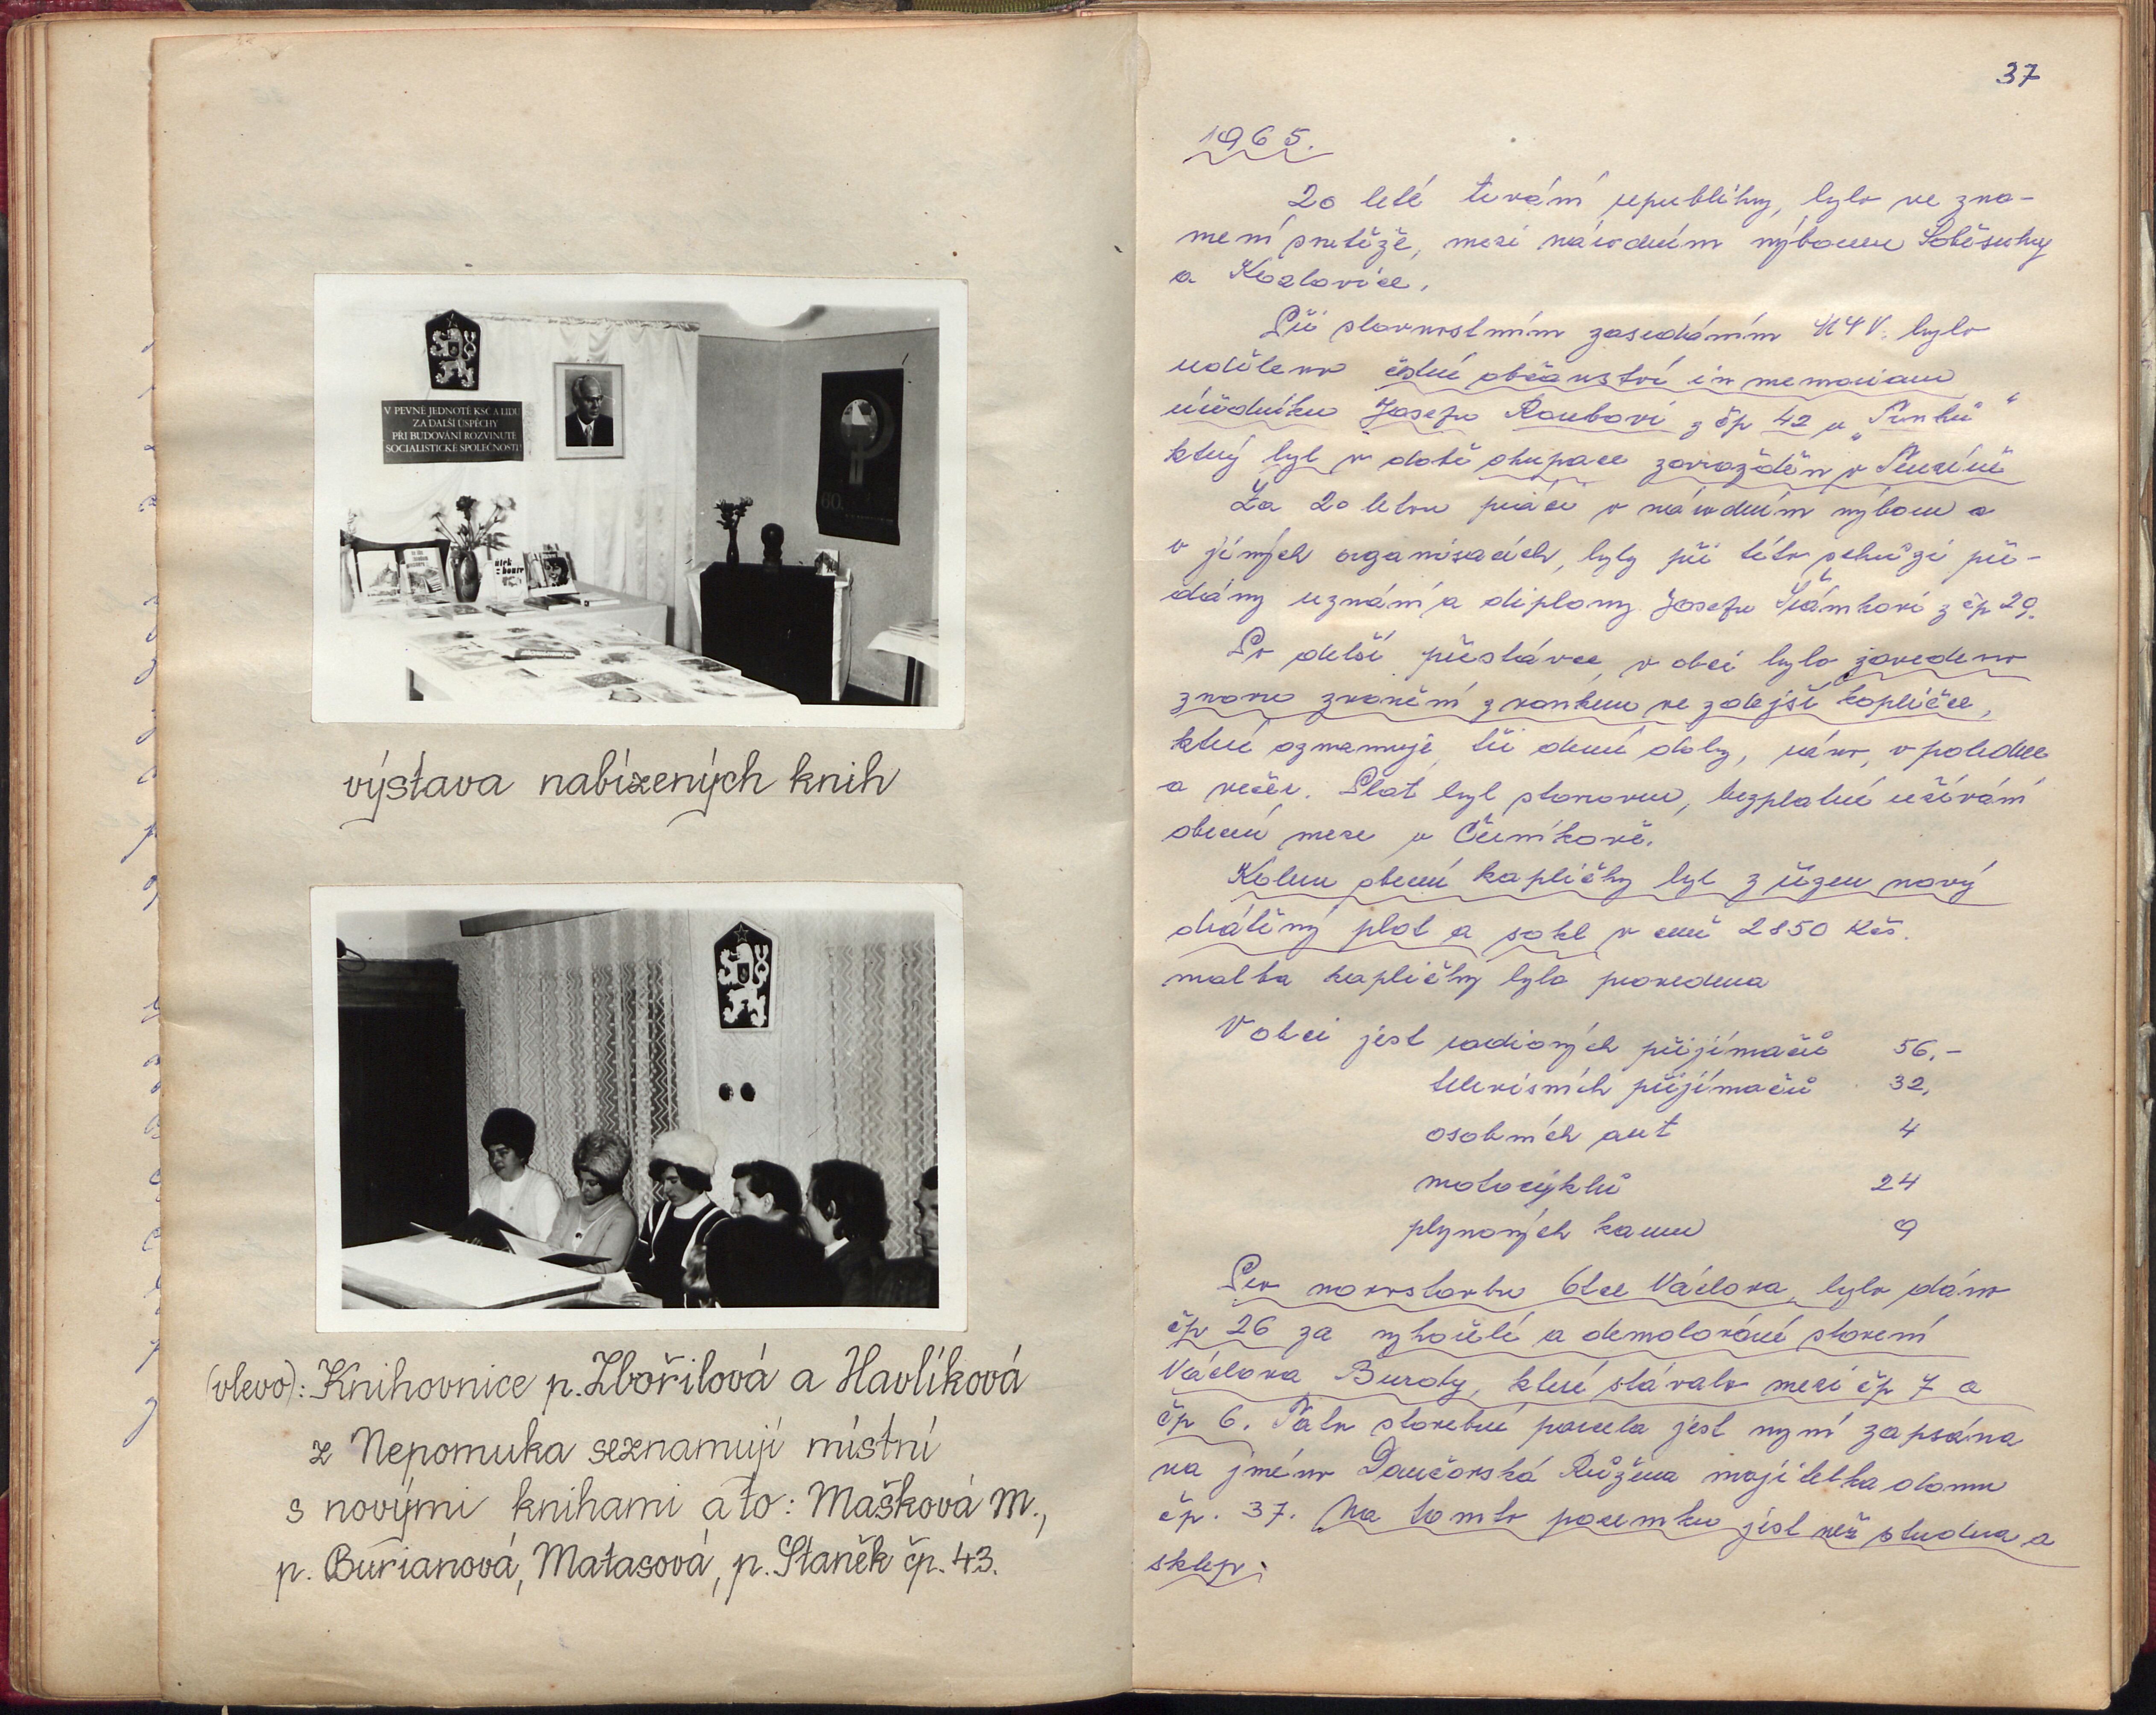 V PEVNÉ JEDNOTĚ KSČ A LIDU
ZA DALŠÍ ÚSPĚCHY
PŘI BUDOVÁNÍ ROZVINUTÉ
SOCIALISTICKÉ SPOLEČNOSTI
60.
výstava nabízených knih
(vlevo): Knihovnice p. Zbořilová a Havlíková
z Nepomuka seznamují místní
s novými knihami a to: Mašková M.,
p. Burianová, Matasová, p. Staněk čp. 43.
37
1965.
20 leté trvání republiky, bylo ve zna-
mení soutěže, mezi národním výborem Soběsuky
a Kozlovice.
Při slavnostním zasedáním M N V. bylo
uděleno čestné občanství in memoriam
úředníku Josefu Roubovi z čp 42 u „
který byl v době okupace zavražděn v Terezíně
Za 20 letou práci v národním výboru a
v jiných organisacích, byly při této schůzi pře-
dány uznání a diplomy Josefu z čp 29.
Po delší přestávce, v obci bylo zavedeno
znovu zvonění zvonkem ve zdejší kapličce,
které oznamuje, tři denní doby, ráno, v poledne
a večer. Plat byl stanoven, bezplatné užívání
obecní meze v
Kolem obecní kapličky byl zřízen nový
drátěný plot a sokl v ceně 2850 Kčs.
malba kapličky byla provedena
V obci jest radiových přijímačů 56.-
televisních přijímačů 32.
osobních aut 4
motocyklů 24
plynových kamen 9
Pro novostavbu Otce Václava, bylo dáno
čp 26 za vyhořelé a demolované stavení
Václava Burdy, které stávalo mezi čp 7 a
čp 6. Tato stavební parcela jest nyní zapsána
na jméno Růžena majitelka domu
čp. 37. Na tomto pozemku jest též studna a
sklep.